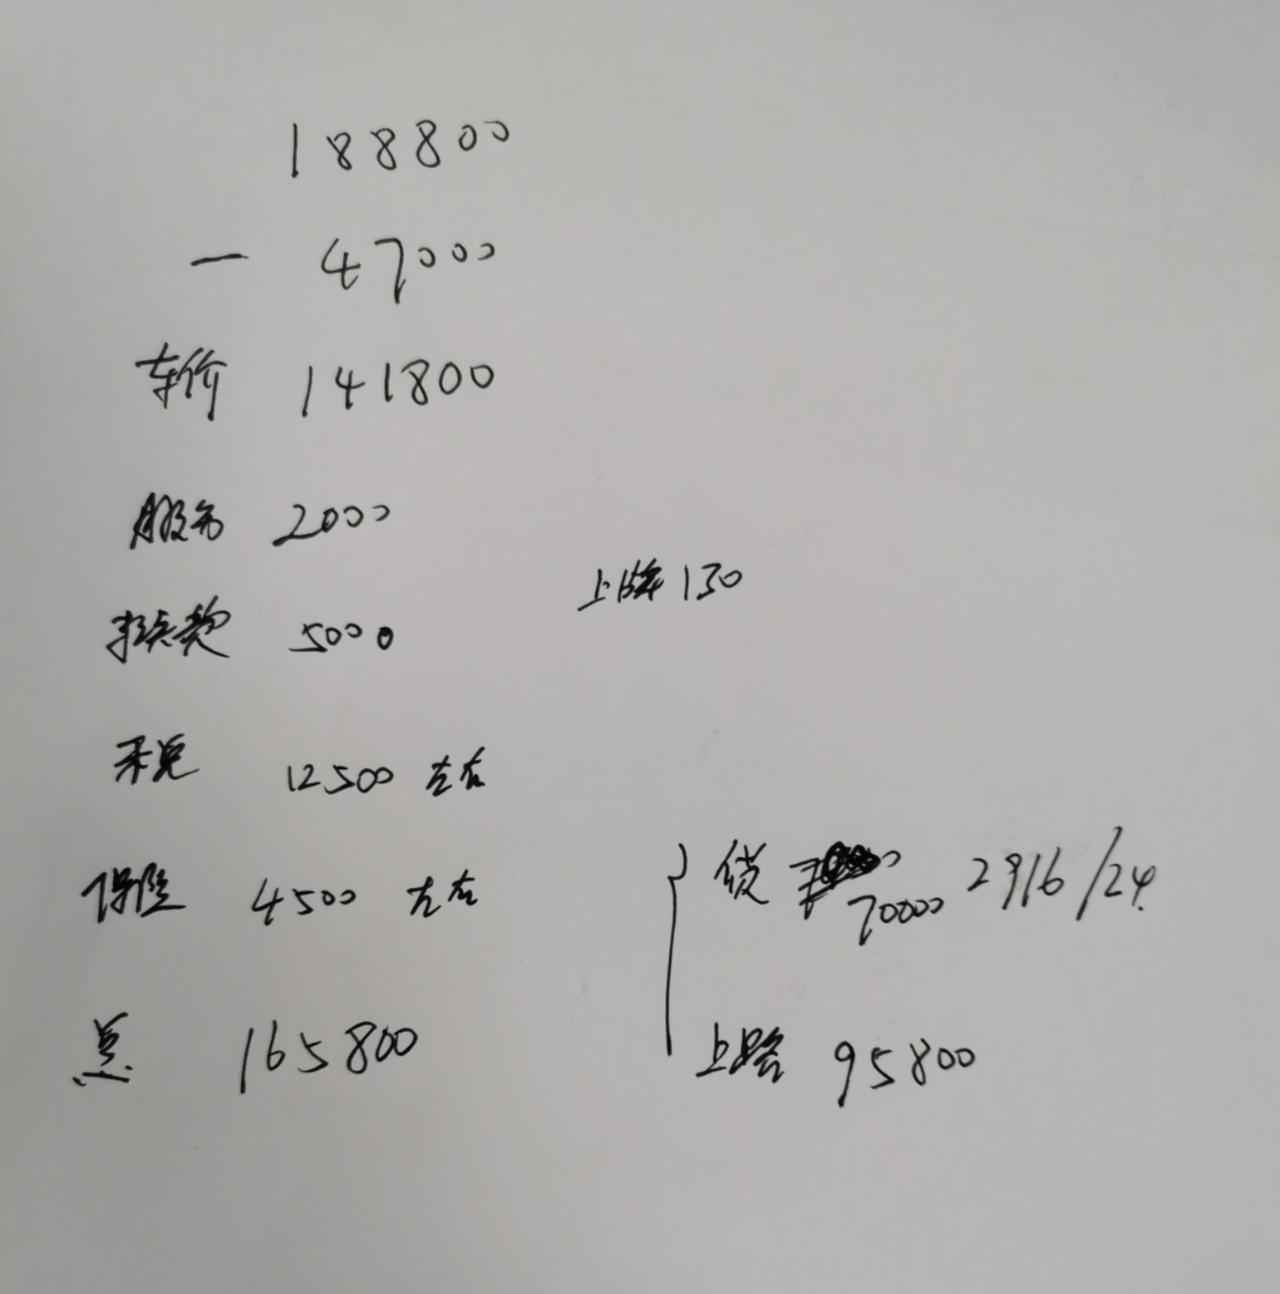 188800
一 47000
车价 141800
服务 2000
上牌 130
5000
税 12500 左右
保险 4500 左右
贷 70000 2916/24
总 165800
上路 95800